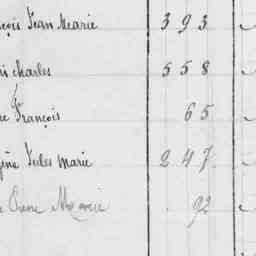 çois Jean Marie 393
is charles 558
re François 65
gène Jules Marie 247
Marie 92